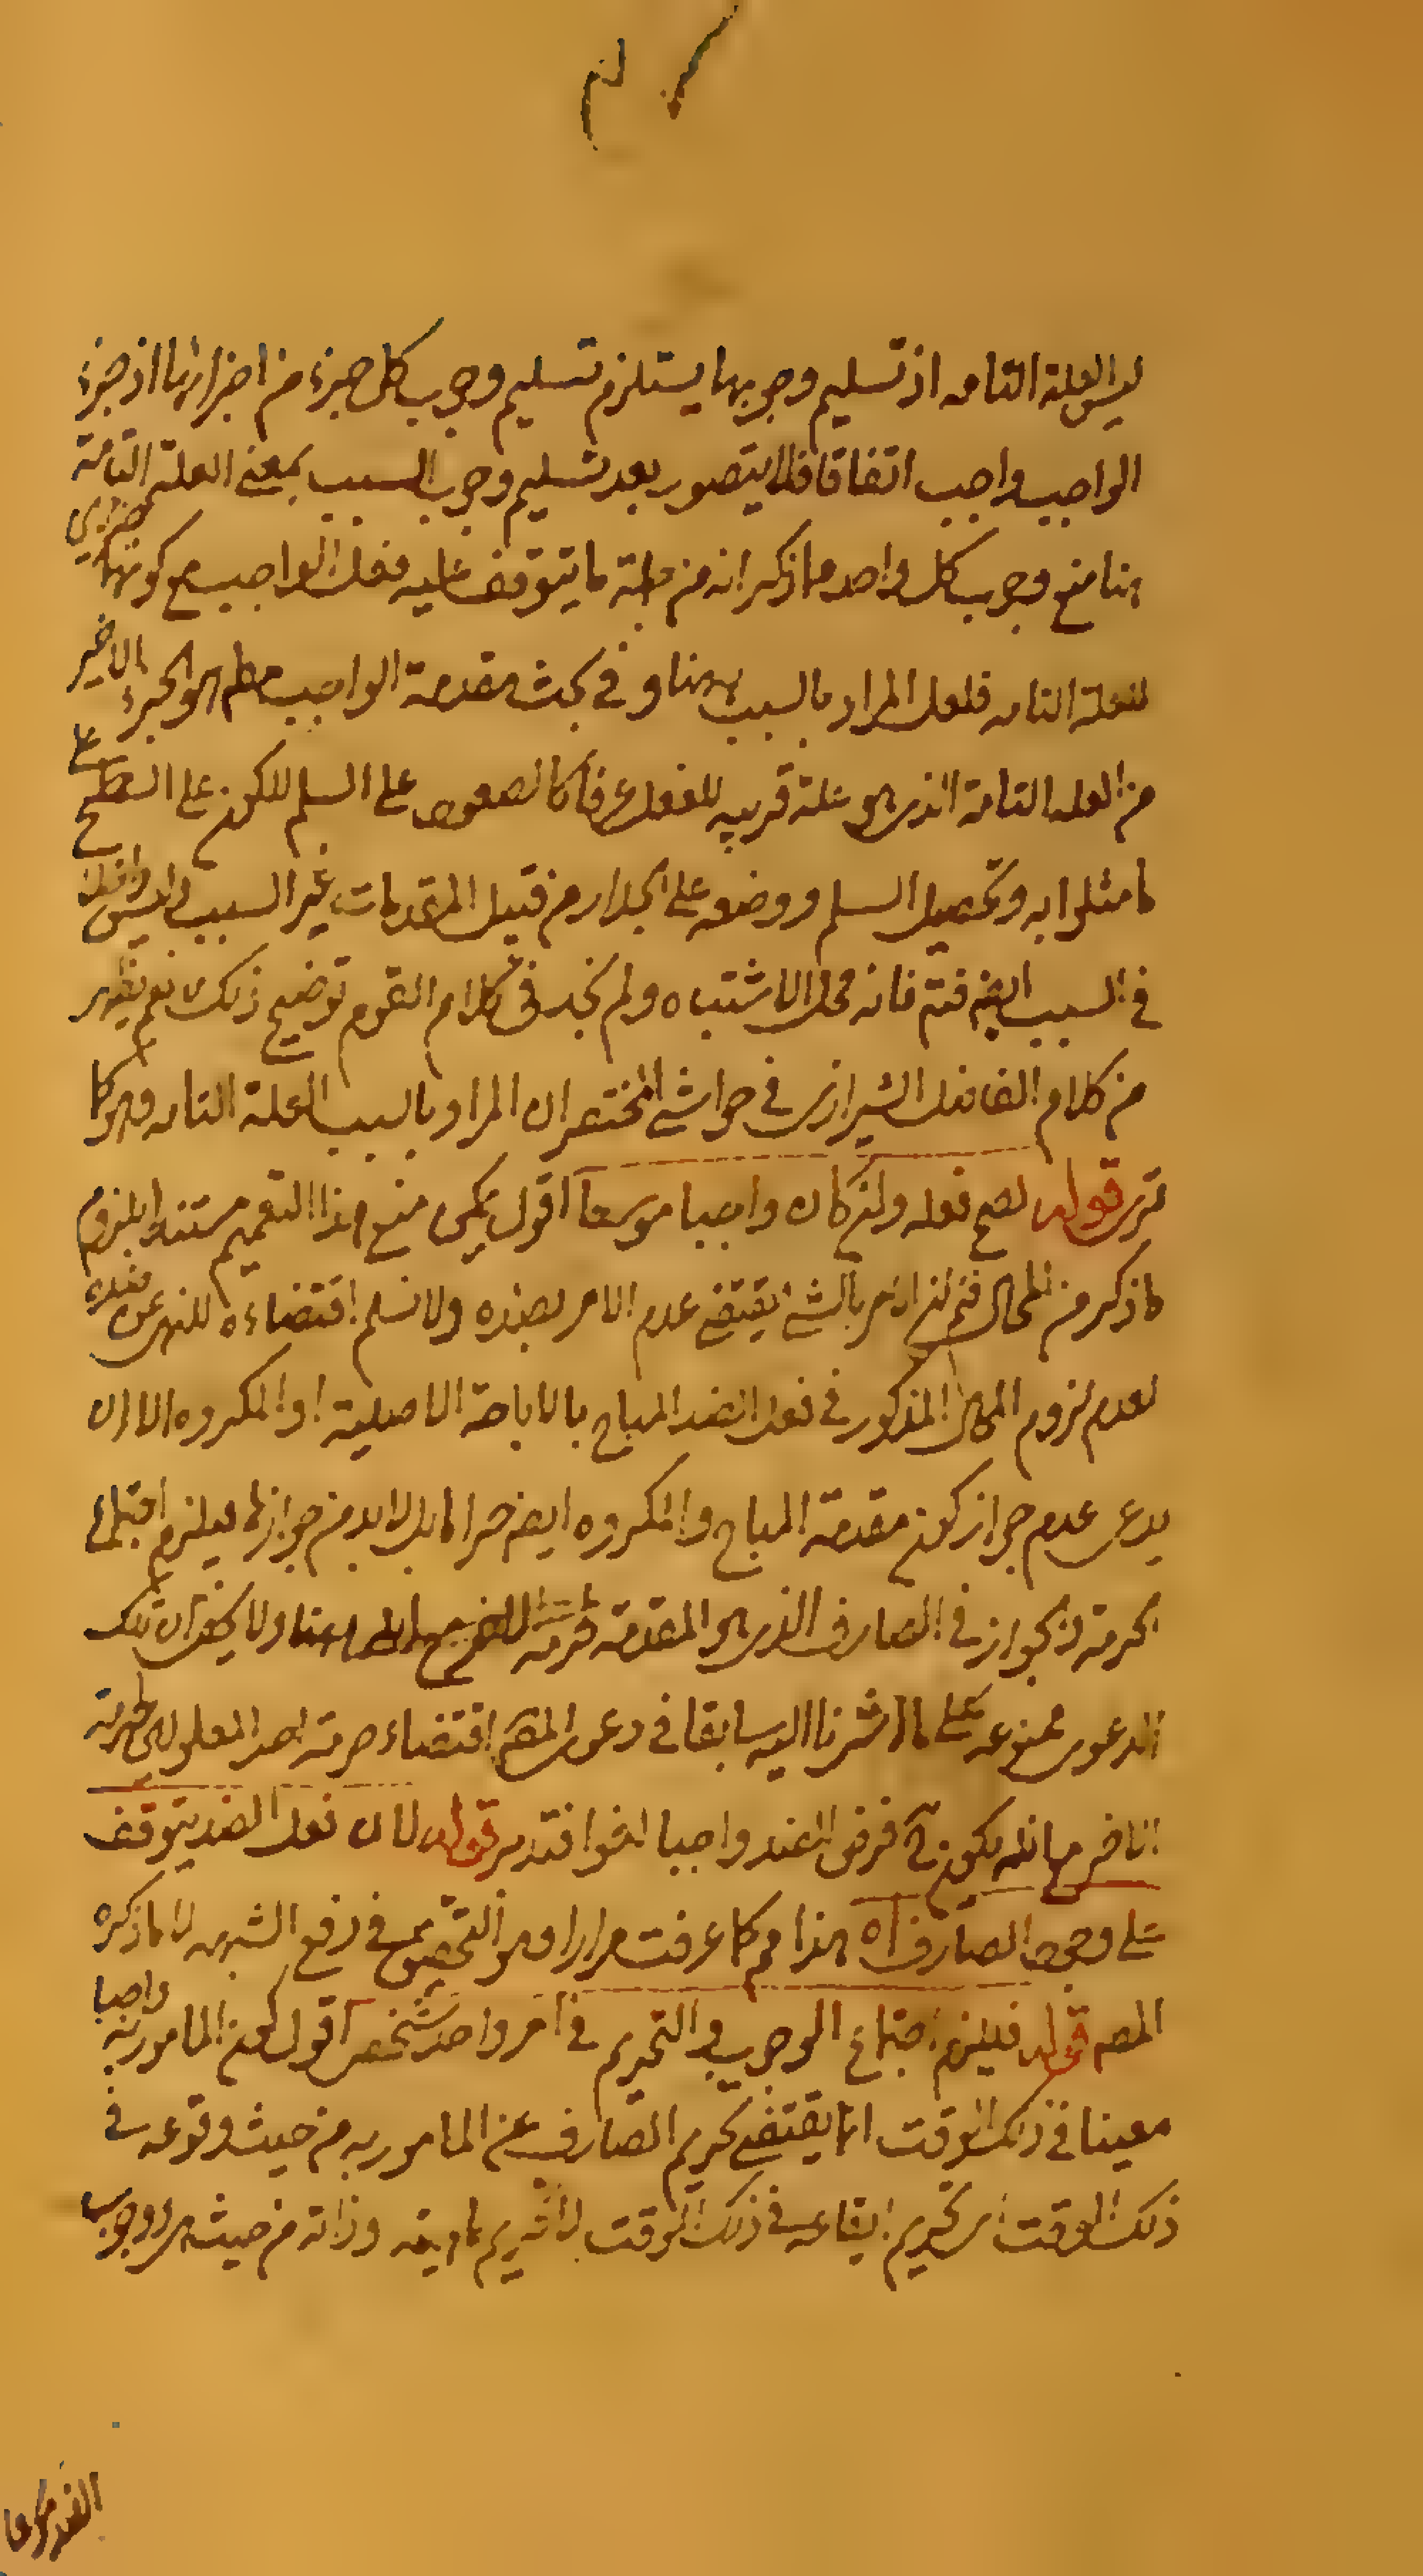 ليس العلة التامه اذ تسليم وجوبها يستلزم تسليم وجوب كل جزء من اجزائها اذ جزء
الواجب واجب اتفاقا فلا يتصور بعد تسليم وجوب السبب بمعنى العلة التامة
هنا منع وجوب كل واحد مما ذكر انه من جملة ما يتوقف عليه فعل الواجب مع كونها
للعلة التامه فلعل المراد بالسبب ههنا و في بحث مقدمة الواجب مطلقا هو الجزء الاخير
من العلة التامة الذي هو علة قريبه للفعل عرفا كالصعود على السلم للكون على السطح على
ما مثلوا به وتحصيل السلم ووضعه على الجدار من قبيل المقدمات غير السبب وليس داخلا
في السبب ايضا فتم فانه محل الاشتباه ولم نجد في كلام القوم توضيح ذلك نعم يظهر
من كلام الفاضل الشيرازي في حواشي المختصر ان المراد بالسبب العلة التامه وهو كما
ترى قوله لصح فعله وان كان واجبا موسعا اقول يمكن منع هذا التعميم مستندا بلزوم
ما ذكر من المحال فتم ان الامر بالشئ يقتضي عدم الامر بضده ولا نسلم اقتضاءه للنهي عن ضده
لعدم لزوم المحال المذكور في فعل الضد المباح بالاباحة الاصلية او المكروه الا ان
يدعى عدم جواز كون مقدمة المباح والمكروه ايضا حراما بل لا بد من جوازها فيلزم اجتماع
الحرمة والجواز في الصارف الذي هو المقدمة ولا يخفى ان تلك
الدعوى ممنوعه على ما اشرنا اليه سابقا في دعوى المصـ اقتضاء حرمة احد المعلولين لحرمة
الاخر فرض الضد واجبا فتدبر قوله لان فعل الضد يتوقف
على وجود الصارف اه هذا هو كما عرفت مرارا وهو التحقيق في دفع الشبهه لا ما ذكره
المصـ قوله فيلزم اجتماع الوجوب والتحريم في امر واحد شخصي اقول كون المامور به واجبا
معينا في ذلك الوقت انما يقتضي تحريم الصارف عن المامور به من حيث وقوعه في
ذلك الوقت اي تحريم ايقاعه في ذلك الوقت لا تحريم ماهيته وذاته من حيث هو ووجوب